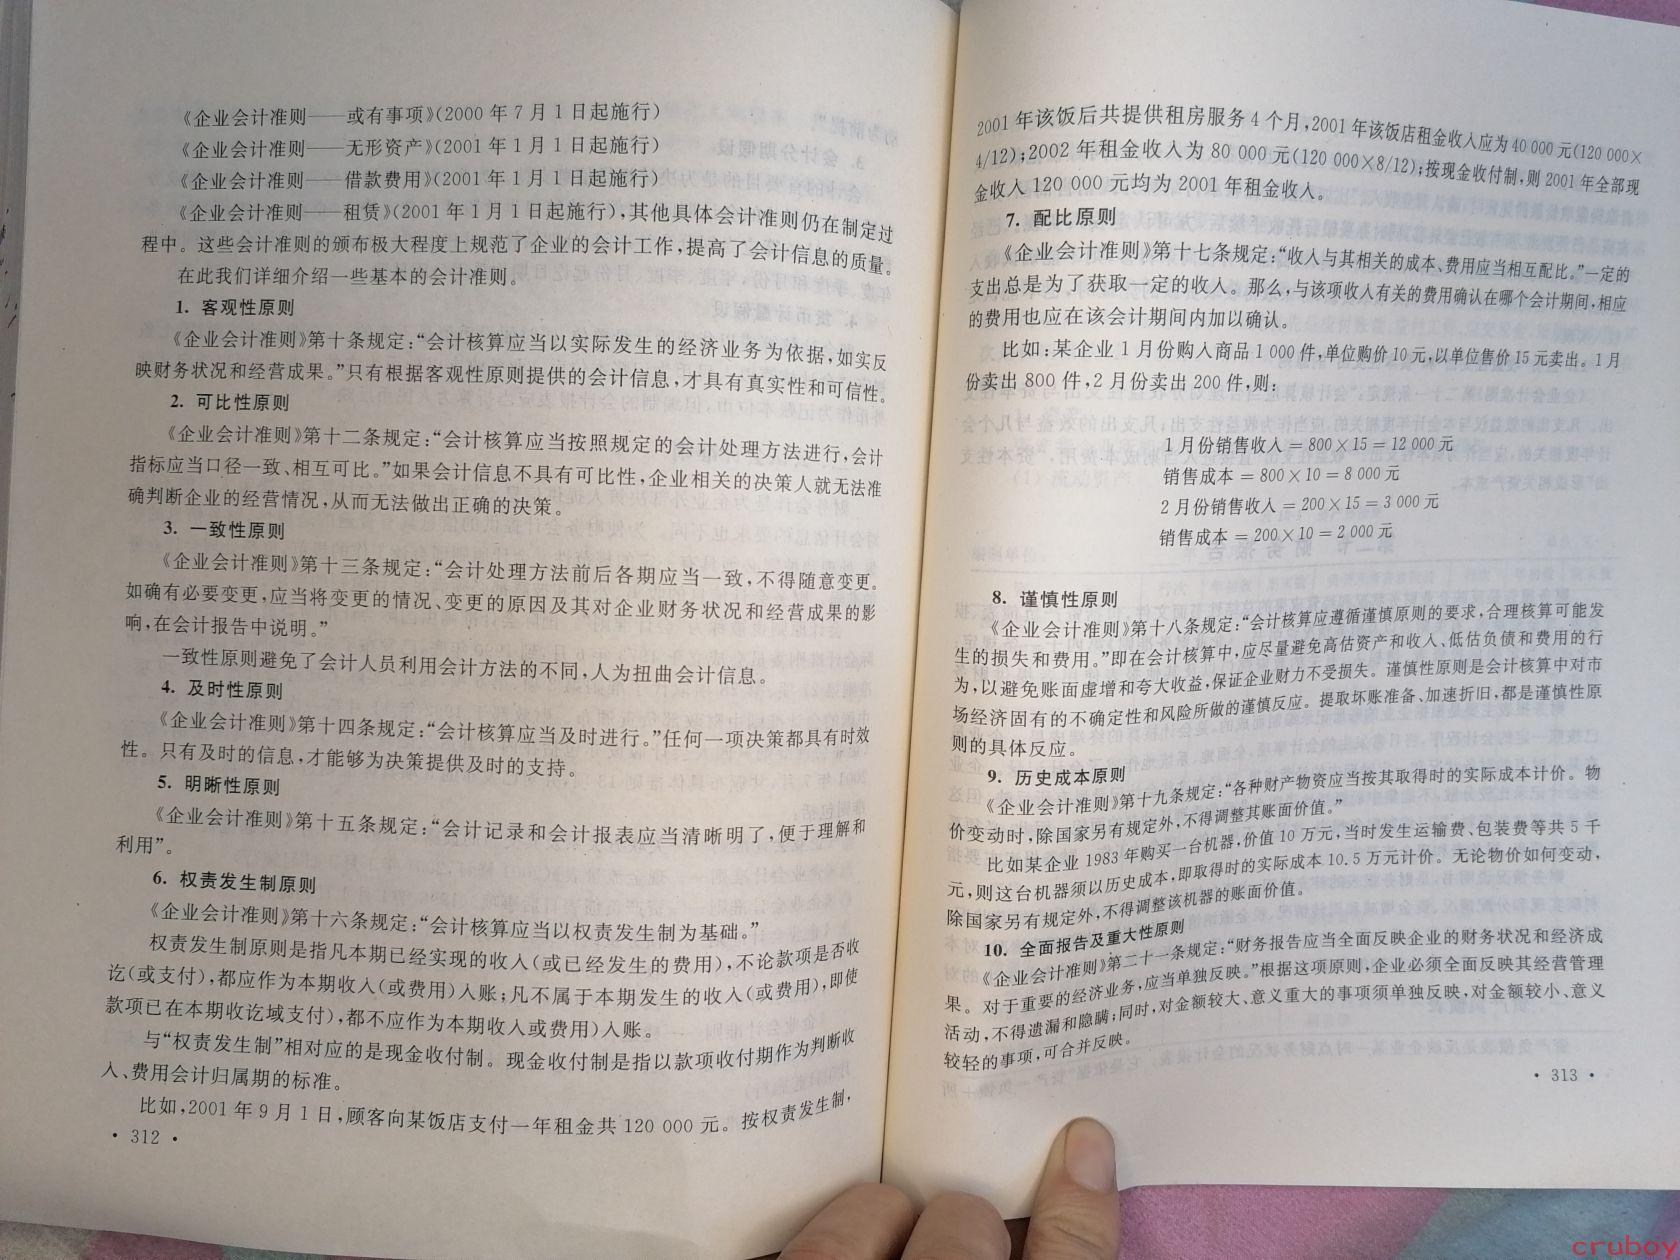 《企业会计准则——或有事项》(2000 年 7 月 1 日起施行)
《企业会计准则——无形资产》(2001 年 1 月 1 日起施行)
《企业会计准则——借款费用》(2001 年 1 月 1 日起施行)
《企业会计准则——租赁》(2001 年 1 月 1 日起施行),其他具体会计准则仍在制定过
程中。这些会计准则的颁布极大程度上规范了企业的会计工作,提高了会计信息的质量。
在此我们详细介绍一些基本的会计准则。
1. 客观性原则
《企业会计准则》第十条规定:“会计核算应当以实际发生的经济业务为依据,如实反
映财务状况和经营成果。”只有根据客观性原则提供的会计信息,才具有真实性和可信性。
2. 可比性原则
《企业会计准则》第十二条规定:“会计核算应当按照规定的会计处理方法进行,会计
指标应当口径一致、相互可比。”如果会计信息不具有可比性,企业相关的决策人就无法准
确判断企业的经营情况,从而无法做出正确的决策。
3. 一致性原则
《企业会计准则》第十三条规定:“会计处理方法前后各期应当一致,不得随意变更。
如确有必要变更,应当将变更的情况、变更的原因及其对企业财务状况和经营成果的影
响,在会计报告中说明。”
一致性原则避免了会计人员利用会计方法的不同,人为扭曲会计信息。
4. 及时性原则
《企业会计准则》第十四条规定:“会计核算应当及时进行。”任何一项决策都具有时效
性。只有及时的信息,才能够为决策提供及时的支持。
5. 明晰性原则
《企业会计准则》第十五条规定:“会计记录和会计报表应当清晰明了,便于理解和
利用”。
6. 权责发生制原则
《企业会计准则》第十六条规定:“会计核算应当以权责发生制为基础。”
权责发生制原则是指凡本期已经实现的收入(或已经发生的费用),不论款项是否收
讫(或支付),都应作为本期收入(或费用)入账;凡不属于本期发生的收入(或费用),即使
款项已在本期收讫域支付),都不应作为本期收入或费用)入账。
与“权责发生制”相对应的是现金收付制。现金收付制是指以款项收付期作为判断收
入、费用会计归属期的标准。
比如,2001 年 9 月 1 日,顾客向某饭店支付一年租金共 120 000 元。按权责发生制,
· 312 ·
2001 年该饭后共提供租房服务 4 个月,2001 年该饭店租金收入应为 40 000 元(120 000×
4/12);2002 年租金收入为 80 000 元(120 000×8/12);按现金收付制,则 2001 年全部现
金收入 120 000 元均为 2001 年租金收入。
7. 配比原则
《企业会计准则》第十七条规定:“收入与其相关的成本、费用应当相互配比。”一定的
支出总是为了获取一定的收入。那么,与该项收入有关的费用确认在哪个会计期间,相应
的费用也应在该会计期间内加以确认。
比如:某企业 1 月份购入商品 1 000 件,单位购价 10 元,以单位售价 15 元卖出。1 月
份卖出 800 件,2 月份卖出 200 件,则:
1 月份销售收入 = 800×15 = 12 000 元
销售成本 = 800×10 = 8 000 元
2 月份销售收入 = 200×15 = 3 000 元
销售成本 = 200×10 = 2 000 元
8. 谨慎性原则
《企业会计准则》第十八条规定:“会计核算应遵循谨慎原则的要求,合理核算可能发
生的损失和费用。”即在会计核算中,应尽量避免高估资产和收入、低估负债和费用的行
为,以避免账面虚增和夸大收益,保证企业财力不受损失。谨慎性原则是会计核算中对市
场经济固有的不确定性和风险所做的谨慎反应。提取坏账准备、加速折旧,都是谨慎性原
则的具体反应。
9. 历史成本原则
《企业会计准则》第十九条规定:“各种财产物资应当按其取得时的实际成本计价。物
价变动时,除国家另有规定外,不得调整其账面价值。”
比如某企业 1983 年购买一台机器,价值 10 万元,当时发生运输费、包装费等共 5 千
元,则这台机器须以历史成本,即取得时的实际成本 10.5 万元计价。无论物价如何变动,
除国家另有规定外,不得调整该机器的账面价值。
10. 全面报告及重大性原则
《企业会计准则》第二十一条规定:“财务报告应当全面反映企业的财务状况和经济成
果。对于重要的经济业务,应当单独反映。”根据这项原则,企业必须全面反映其经营管理
活动,不得遗漏和隐瞒;同时,对金额较大、意义重大的事项须单独反映,对金额较小、意义
较轻的事项,可合并反映。
· 313 ·
cruboy